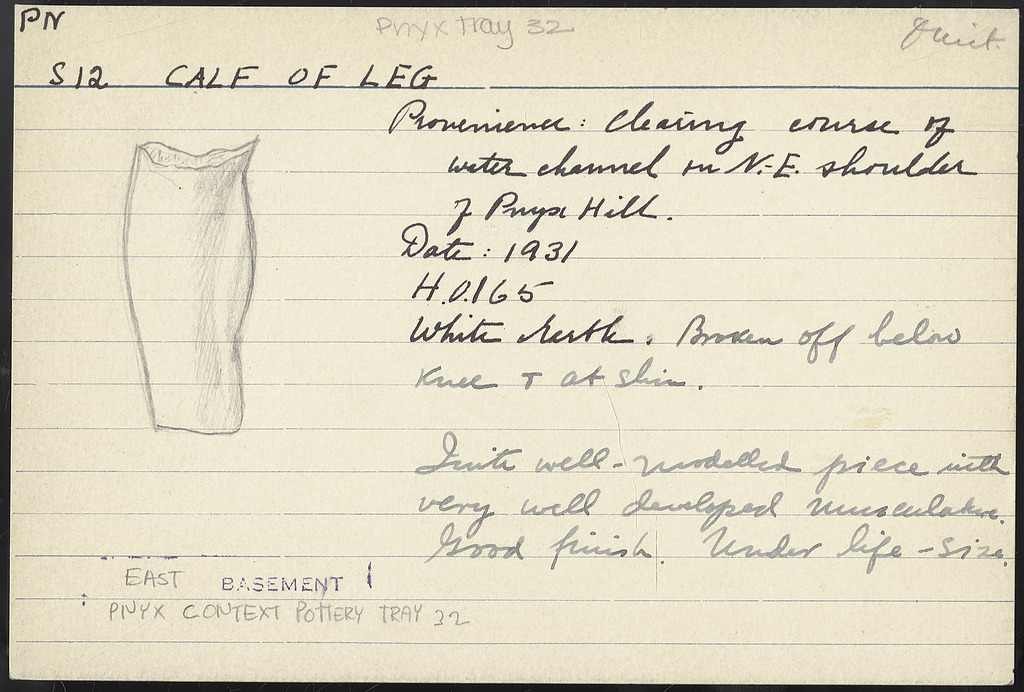 PN
Pnyx tray 32
Omit.
S 12 CALF OF LEG
Provenience: Clearing course of
water channel on N.-E. shoulder
of Pnyx Hill.
Date: 1931
H. 0.165
White Earth. Broken off below
knee + at shin.
Quite well-modelled piece with
very well developed musculature.
Good finish. Under life-size.
EAST BASEMENT
PNYX CONTEXT POTTERY TRAY 32